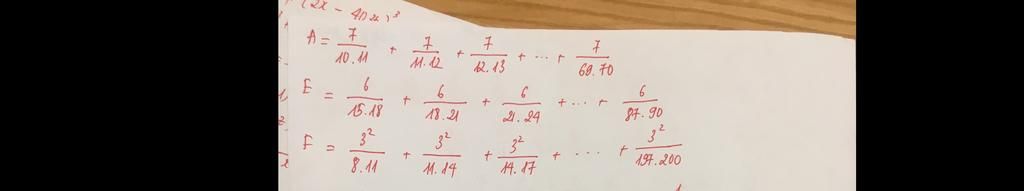 A = 7/10.11 + 7/11.12 + 7/12.13 + ... + 7/69.70
E = 6/15.18 + 6/18.21 + 6/21.24 + ... + 6/87.90
F = 3²/8.11 + 3²/11.14 + 3²/14.17 + ... + 3²/197.200